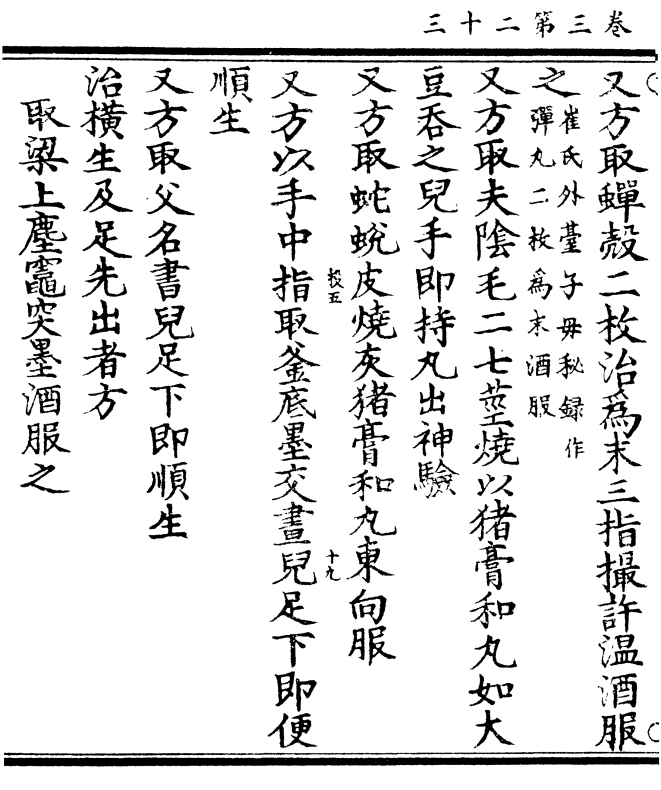 卷三第二十三
又方取蟬殼二枚治爲末三指撮許温酒服
之
崔氏外臺子毋秘録作
彈丸二枚爲末酒服
又方取夫陰毛二七莖燒以猪膏和丸如大
豆吞之兒手即持丸出神驗
又方取蛇蛻皮燒灰猪膏和丸東向服
五
十九
又方以手中指取釜底墨交畫兒足下即便
順生
又方取父名書兒足下即順生
治橫生及足先出者方
取梁上塵竈突墨酒服之